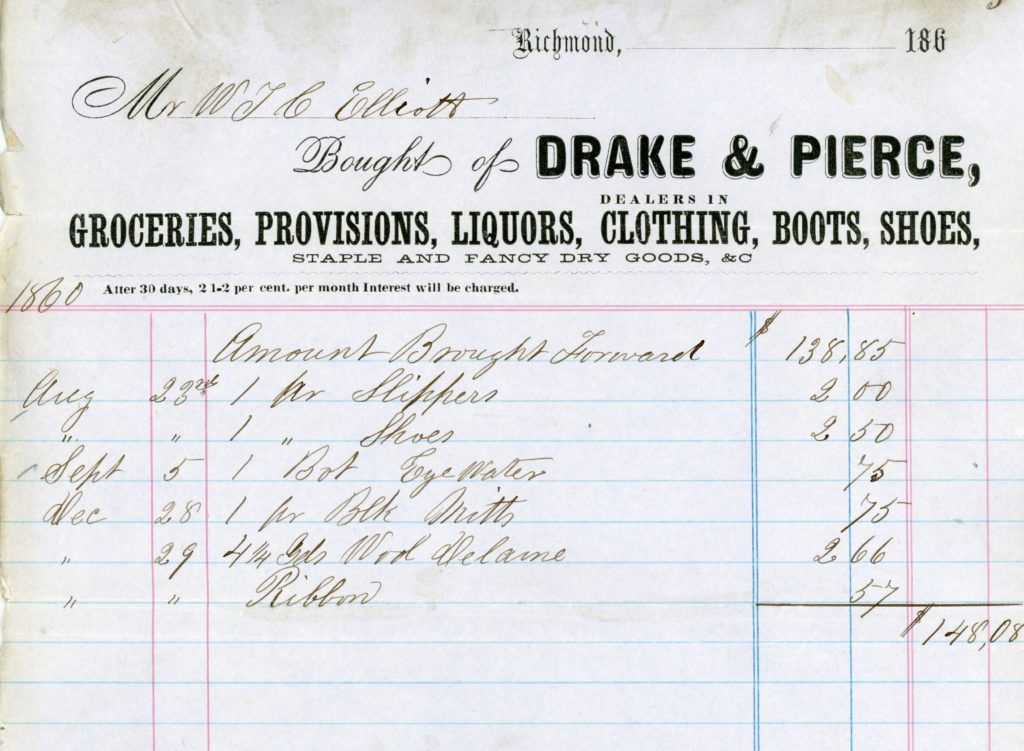 Richmond, 186
Mr W T C Elliott
Bought of DRAKE & PIERCE,
DEALERS IN
GROCERIES, PROVISIONS, LIQUORS, CLOTHING, BOOTS, SHOES,
STAPLE AND FANCY DRY GOODS, &C
1860 After 30 days, 2 1-2 per cent. per month Interest will be charged.
Amount Brought Forward $ 138,85
Aug 23rd 1 pr Slippers 2 00
" " 1 " Shoes 2 50
Sept 5 1 Bot Eye Water 75
Dec 28 1 pr Blk Mitts 75
" 29 4 1/4 Yds Wool Delaine 2 66
" " Ribbon 57
$ 148,08